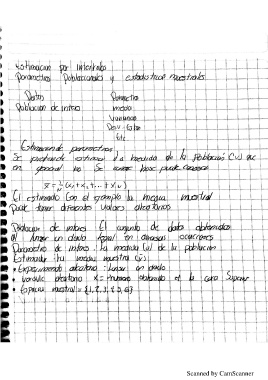 Estimacion por intervalo
Parametros Poblacionales y estadisticos muestrales
Datos Parametro
Poblacion de interes media
Varianza
Desv-
Etc
Estimando parametros
Se pretende estimar la media de la Poblacion (u) que
en general no se puede conocer
x̅ = 1/N (x₁+x₂+...+xₙ)
El estimando Con el ejemplo la media muestral
Puede tomar diferentes valores aleatorios
Poblacion de interes El conjunto de datos obtenidos
al dado en ocasiones
Parametro de interes: La media (u) de la población
Estimador la media muestral (x̅)
• Experimento aleatorio: Lanzar un dado
• Variable aleatoria X = Numero obtenido en la cara Superior
• Espacio muestral = {1, 2, 3, 4, 5, 6}
Scanned by CamScanner